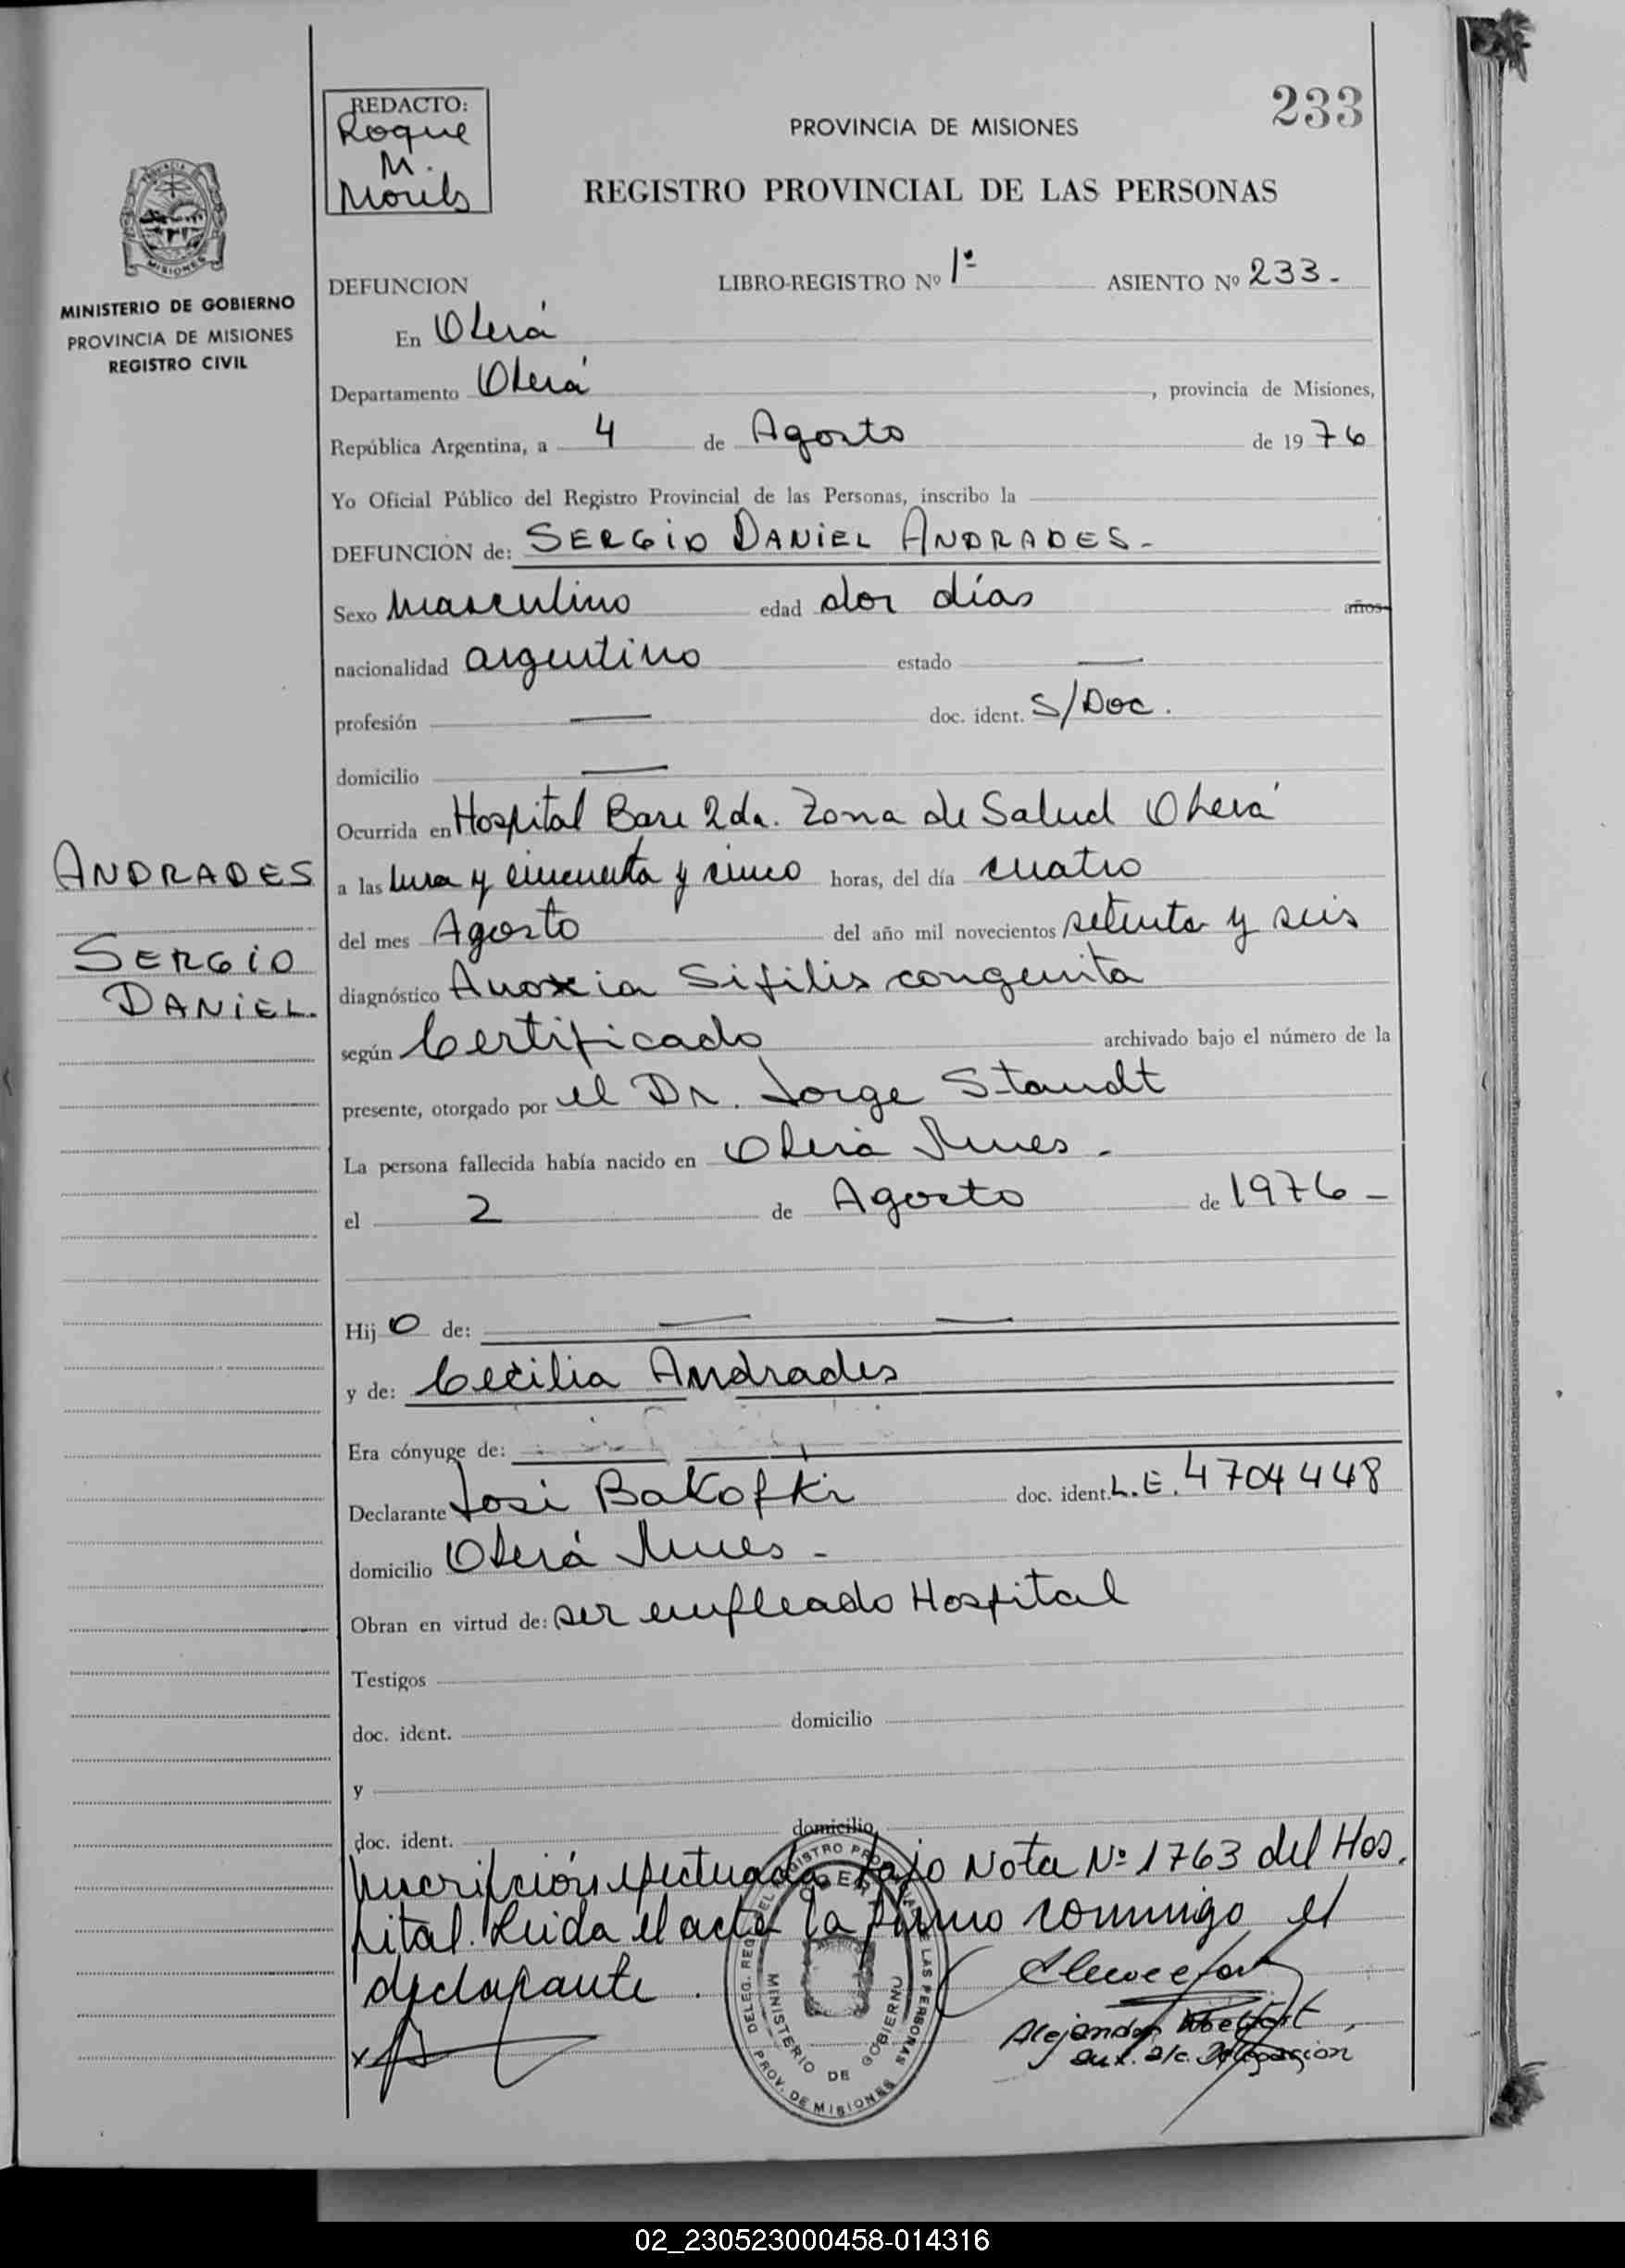 233
REDACTO:
Roque
M.
PROVINCIA DE MISIONES
REGISTRO PROVINCIAL DE LAS PERSONAS
PROVINCIA
MISIONES
MINISTERIO DE GOBIERNO
PROVINCIA DE MISIONES
REGISTRO CIVIL
DEFUNCION LIBRO-REGISTRO Nº 1º ASIENTO Nº 233.-
En Oberá
Departamento Oberá, provincia de Misiones,
República Argentina, a 4 de Agosto de 1976
Yo Oficial Público del Registro Provincial de las Personas, inscribo la
DEFUNCIÓN de: SERGIO DANIEL ANDRADES.-
Sexo Masculino edad dos días años
nacionalidad argentino estado —
profesión — doc. ident. S/Doc.
domicilio —
Ocurrida en Hospital Base 2da. Zona de Salud Oberá
ANDRADES
a las una y cincuenta y cinco horas, del día cuatro
del mes Agosto del año mil novecientos setenta y seis
SERGIO
DANIEL.
diagnóstico Anoxia Sifilis congenita
según Certificado archivado bajo el número de la
presente, otorgado por el Dr. Jorge Staudt
La persona fallecida había nacido en Oberá Mnes.
el 2 de Agosto de 1976-
Hijo de: — —
y de: Cecilia Andrades
Era cónyuge de:
Declarante José Bakofki doc. ident. L.E. 4704448
domicilio Oberá Mnes-
Obran en virtud de: ser empleado Hospital
Testigos
doc. ident. domicilio
y
doc. ident. domicilio
Inscripción efectuada bajo Nota Nº 1763 del Hos.
pital. Leida el acta la firmo conmigo el
declarante.
DELEG. REG. DEL REGISTRO PROV. DE LAS PERSONAS
OBERA
MINISTERIO DE GOBIERNO
PROV. DE MISIONES
Alejandro
aux. a/c. Delegacion
02_230523000458-014316